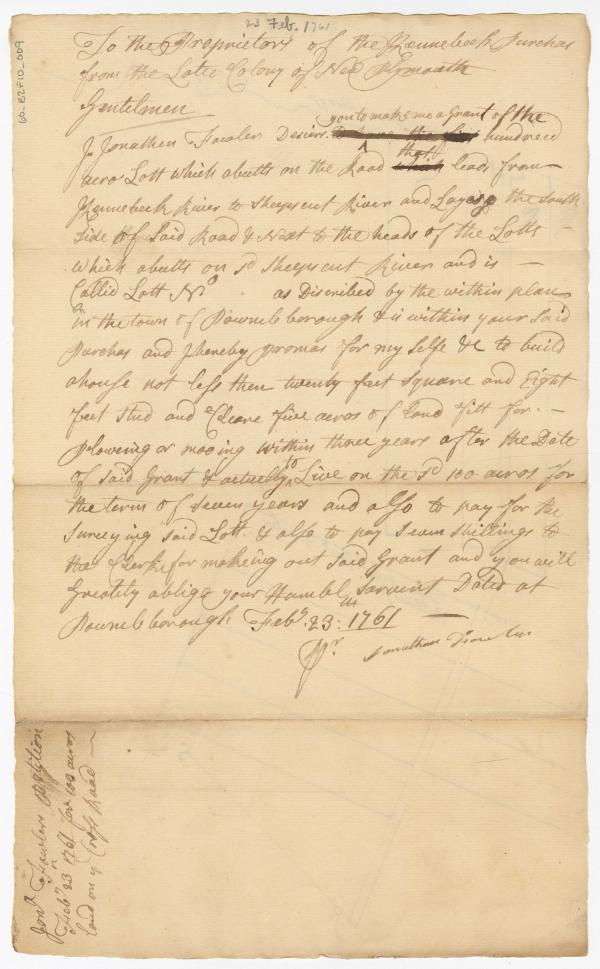 23 Feb. 1761
60-B2F10_009
To the Proprietors of the Kennebeck Purchas
from the Late Colony of New Plymouth
Gentelmen
you to make me a Grant of the
I Jonathen Fowler Desiers hundred
acro Lott which abutts on the Road that leads from
Kennebeck River to Sheepscut River and Laying the South
Side of Said Road & Next to the heads of the Lotts –
which abutts on sd Sheepscut River and is –
Callid Lott No as Discribed by the within plan
in the town of Pownelborough & is within your Said
Purchas and I hereby promas for my Selfe &c to build
a house not less then twenty feet Square and Eight
feet Stud and Cleare five acros of Land fitt for –
plowering or mooing within three years after the Date
of Said Grant & actuelly to Live on the sd 100 acros for
the term of Seven years and also to pay for the
Surveying Said Lott & also to pay Seven Shillings to
the Clerke for makeing out Said Grant and you will
Greatily oblige your Humbl Sarvent Dated at
Pownelborough Feby 23: 1761 —
Pr Jonathan Fowler
Jona Fowlers Petition
Feby 23 1761 for 100 acros
Land on y Cross Road —